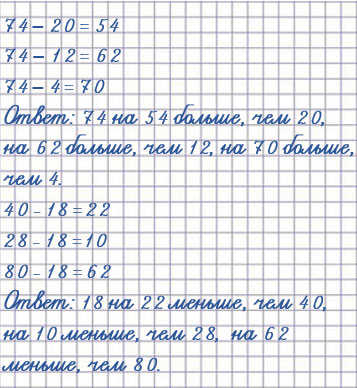 74 - 20 = 54
74 - 12 = 62
74 - 4 = 70
Ответ: 74 на 54 больше, чем 20,
на 62 больше, чем 12, на 70 больше,
чем 4.
40 - 18 = 22
28 - 18 = 10
80 - 18 = 62
Ответ: 18 на 22 меньше, чем 40,
на 10 меньше, чем 28, на 62
меньше, чем 80.